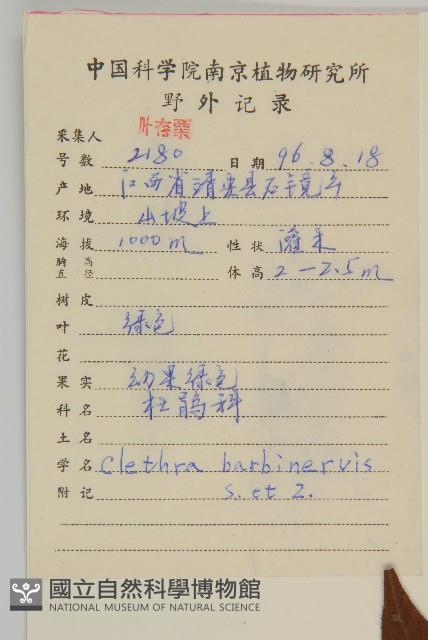 中国科学院南京植物研究所
野外记录
采集人 叶存粟
号数 2180 日期 96.8.18
产地 江西省靖安县石境
环境 山坡上
海拔 1000m 性状 灌木
胸高直径 体高 2-2.5m
树皮
叶 绿色
花
果实 幼果绿色
科名 杜鹃科
土名
学名 Clethra barbinervis
附记 S. et Z.
國立自然科學博物館
NATIONAL MUSEUM OF NATURAL SCIENCE